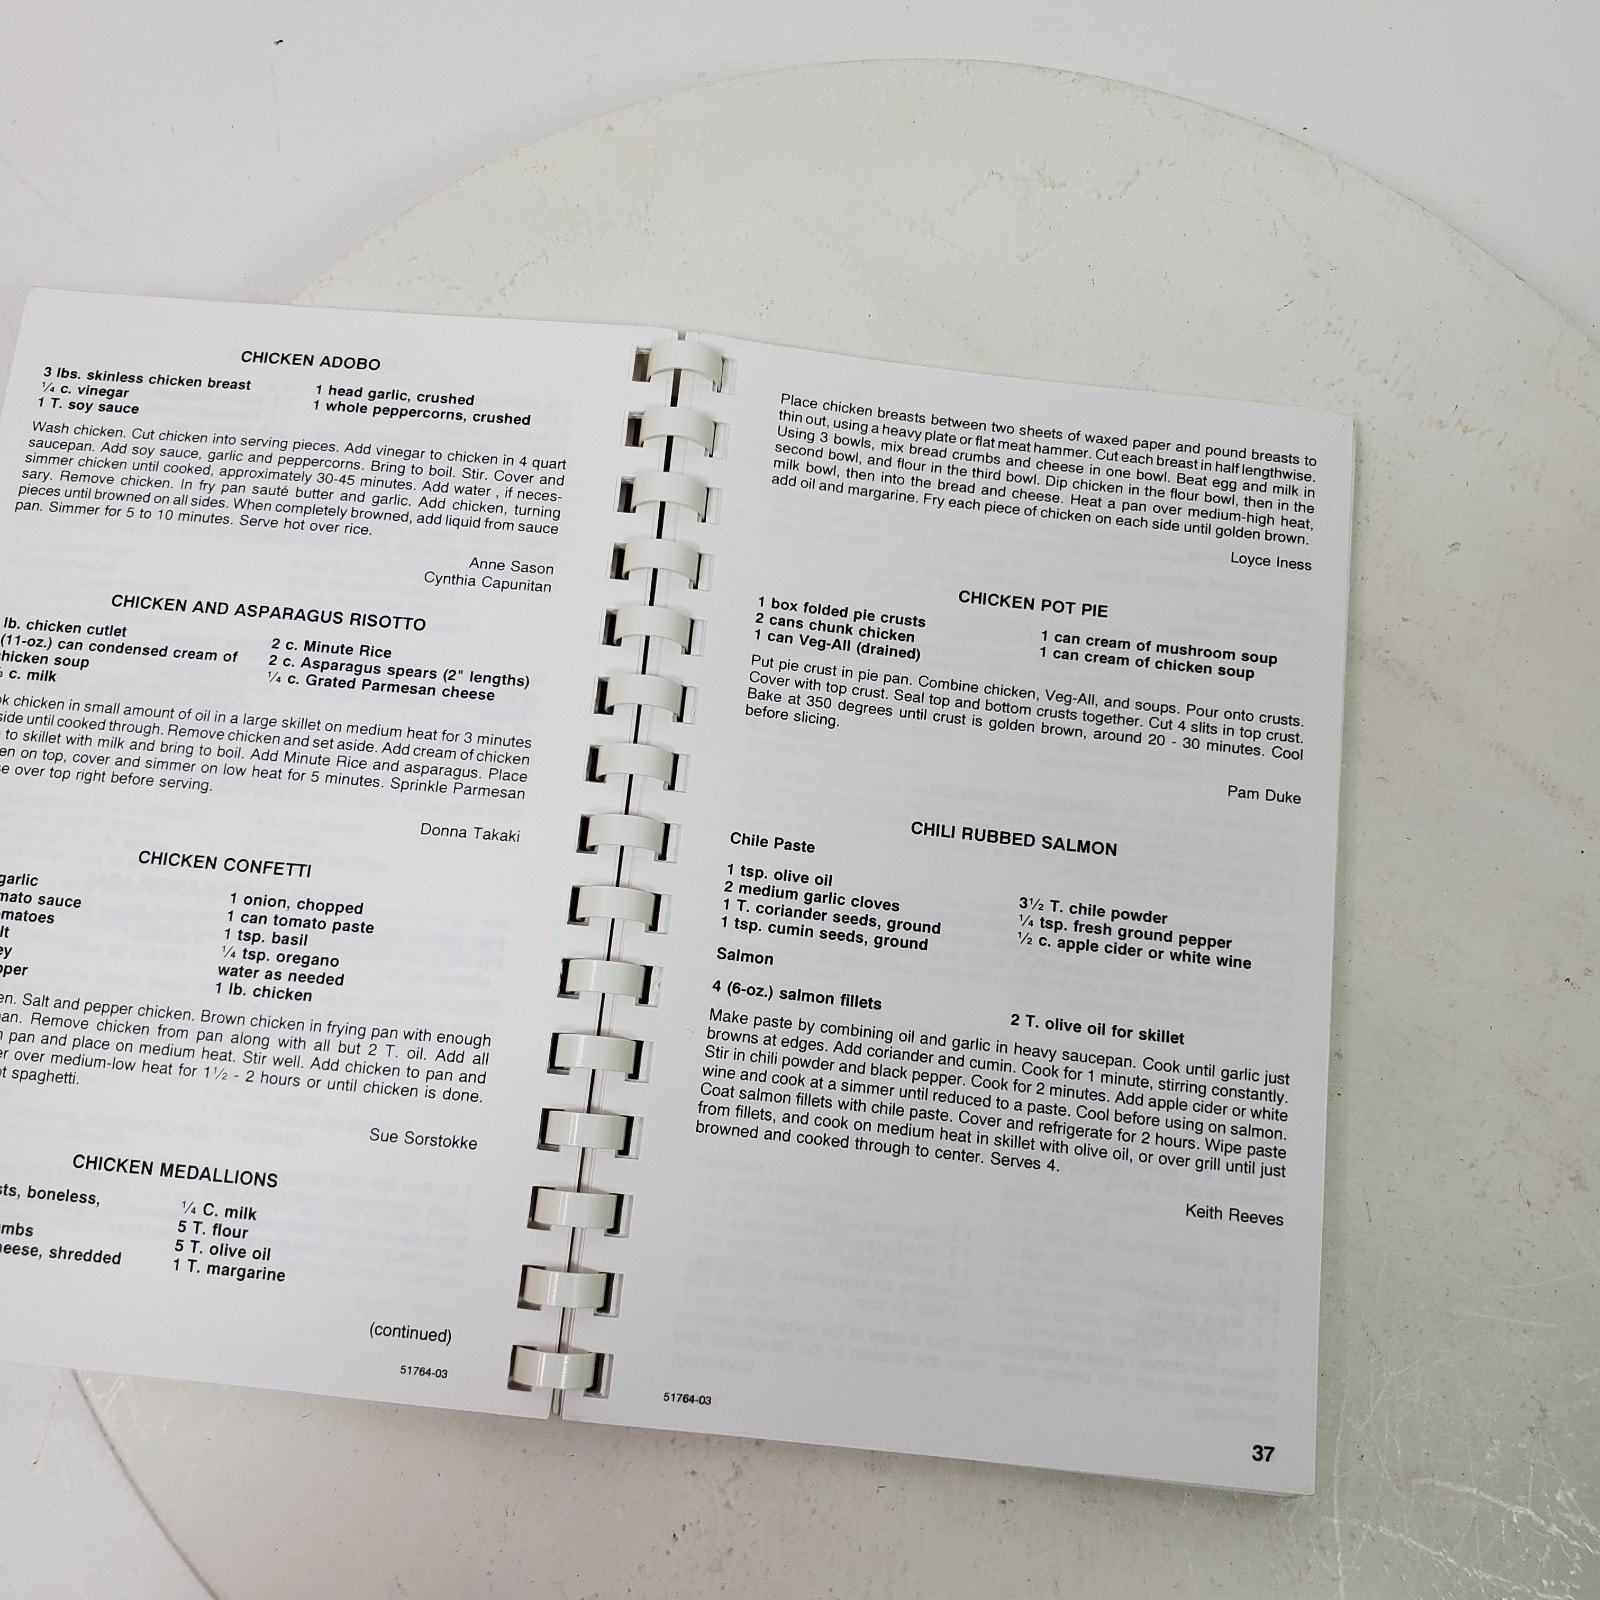 CHICKEN ADOBO
3 lbs. skinless chicken breast
¼ c. vinegar
1 T. soy sauce
1 head garlic, crushed
1 whole peppercorns, crushed
Wash chicken. Cut chicken into serving pieces. Add vinegar to chicken in 4 quart
saucepan. Add soy sauce, garlic and peppercorns. Bring to boil. Stir. Cover and
simmer chicken until cooked, approximately 30-45 minutes. Add water , if neces-
sary. Remove chicken. In fry pan sauté butter and garlic. Add chicken, turning
pieces until browned on all sides. When completely browned, add liquid from sauce
pan. Simmer for 5 to 10 minutes. Serve hot over rice.
Anne Sason
Cynthia Capunitan
CHICKEN AND ASPARAGUS RISOTTO
lb. chicken cutlet
(11-oz.) can condensed cream of
chicken soup
c. milk
2 c. Minute Rice
2 c. Asparagus spears (2" lengths)
¼ c. Grated Parmesan cheese
chicken in small amount of oil in a large skillet on medium heat for 3 minutes
side until cooked through. Remove chicken and set aside. Add cream of chicken
to skillet with milk and bring to boil. Add Minute Rice and asparagus. Place
on top, cover and simmer on low heat for 5 minutes. Sprinkle Parmesan
over top right before serving.
Donna Takaki
CHICKEN CONFETTI
garlic
sauce
1 onion, chopped
1 can tomato paste
1 tsp. basil
¼ tsp. oregano
water as needed
1 lb. chicken
Salt and pepper chicken. Brown chicken in frying pan with enough
Remove chicken from pan along with all but 2 T. oil. Add all
pan and place on medium heat. Stir well. Add chicken to pan and
over medium-low heat for 1½ - 2 hours or until chicken is done.
spaghetti.
Sue Sorstokke
CHICKEN MEDALLIONS
boneless,
shredded
¼ C. milk
5 T. flour
5 T. olive oil
1 T. margarine
(continued)
51764-03
Place chicken breasts between two sheets of waxed paper and pound breasts to
thin out, using a heavy plate or flat meat hammer. Cut each breast in half lengthwise.
Using 3 bowls, mix bread crumbs and cheese in one bowl. Beat egg and milk in
second bowl, and flour in the third bowl. Dip chicken in the flour bowl, then in the
milk bowl, then into the bread and cheese. Heat a pan over medium-high heat,
add oil and margarine. Fry each piece of chicken on each side until golden brown.
Loyce Iness
CHICKEN POT PIE
1 box folded pie crusts
2 cans chunk chicken
1 can Veg-All (drained)
1 can cream of mushroom soup
1 can cream of chicken soup
Put pie crust in pie pan. Combine chicken, Veg-All, and soups. Pour onto crusts.
Cover with top crust. Seal top and bottom crusts together. Cut 4 slits in top crust.
Bake at 350 degrees until crust is golden brown, around 20 - 30 minutes. Cool
before slicing.
Pam Duke
CHILI RUBBED SALMON
Chile Paste
1 tsp. olive oil
2 medium garlic cloves
1 T. coriander seeds, ground
1 tsp. cumin seeds, ground
3½ T. chile powder
¼ tsp. fresh ground pepper
½ c. apple cider or white wine
Salmon
4 (6-oz.) salmon fillets
2 T. olive oil for skillet
Make paste by combining oil and garlic in heavy saucepan. Cook until garlic just
browns at edges. Add coriander and cumin. Cook for 1 minute, stirring constantly.
Stir in chili powder and black pepper. Cook for 2 minutes. Add apple cider or white
wine and cook at a simmer until reduced to a paste. Cool before using on salmon.
Coat salmon fillets with chile paste. Cover and refrigerate for 2 hours. Wipe paste
from fillets, and cook on medium heat in skillet with olive oil, or over grill until just
browned and cooked through to center. Serves 4.
Keith Reeves
51764-03
37